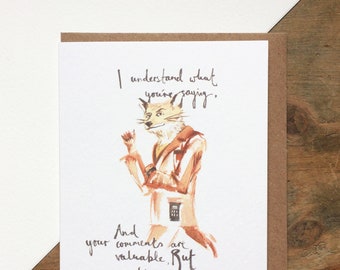 I understand what
you're saying.
And
your comments are
valuable. But